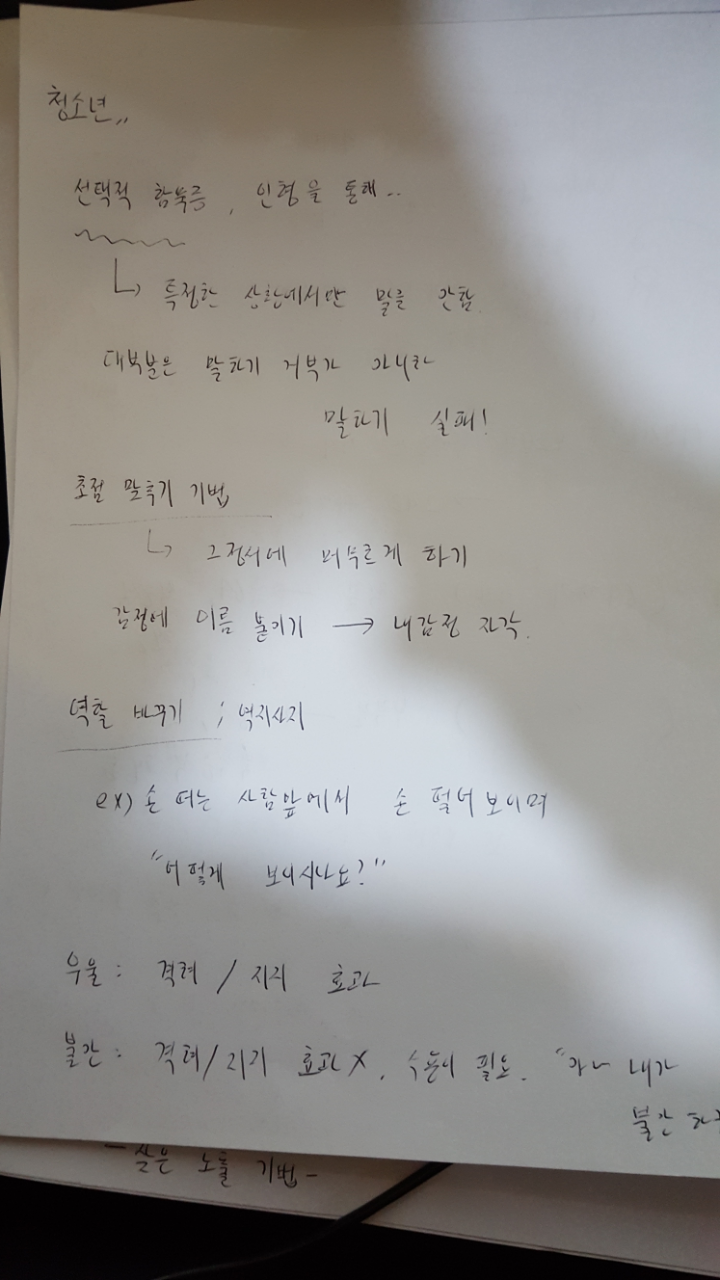 청소년,,
선택적 함묵증, 인형을 통해..
↳ 특정한 상황에서만 말을 안함.
대부분은 말하기 거부가 아니라
말하기 실패!
초점 맞추기 기법
↳ 그정서에 머무르게 하기
감정에 이름 붙이기 → 내감정 자각.
역할 바꾸기 ; 역지사지
ex) 손 떠는 사람앞에서 손 떨어보이며
"어떻게 보이시나요?"
우울 : 격려 / 지지 효과
불안 : 격려/지지 효과 X, 수용이 필요. "아~ 내가
불안 하
노출 기법-